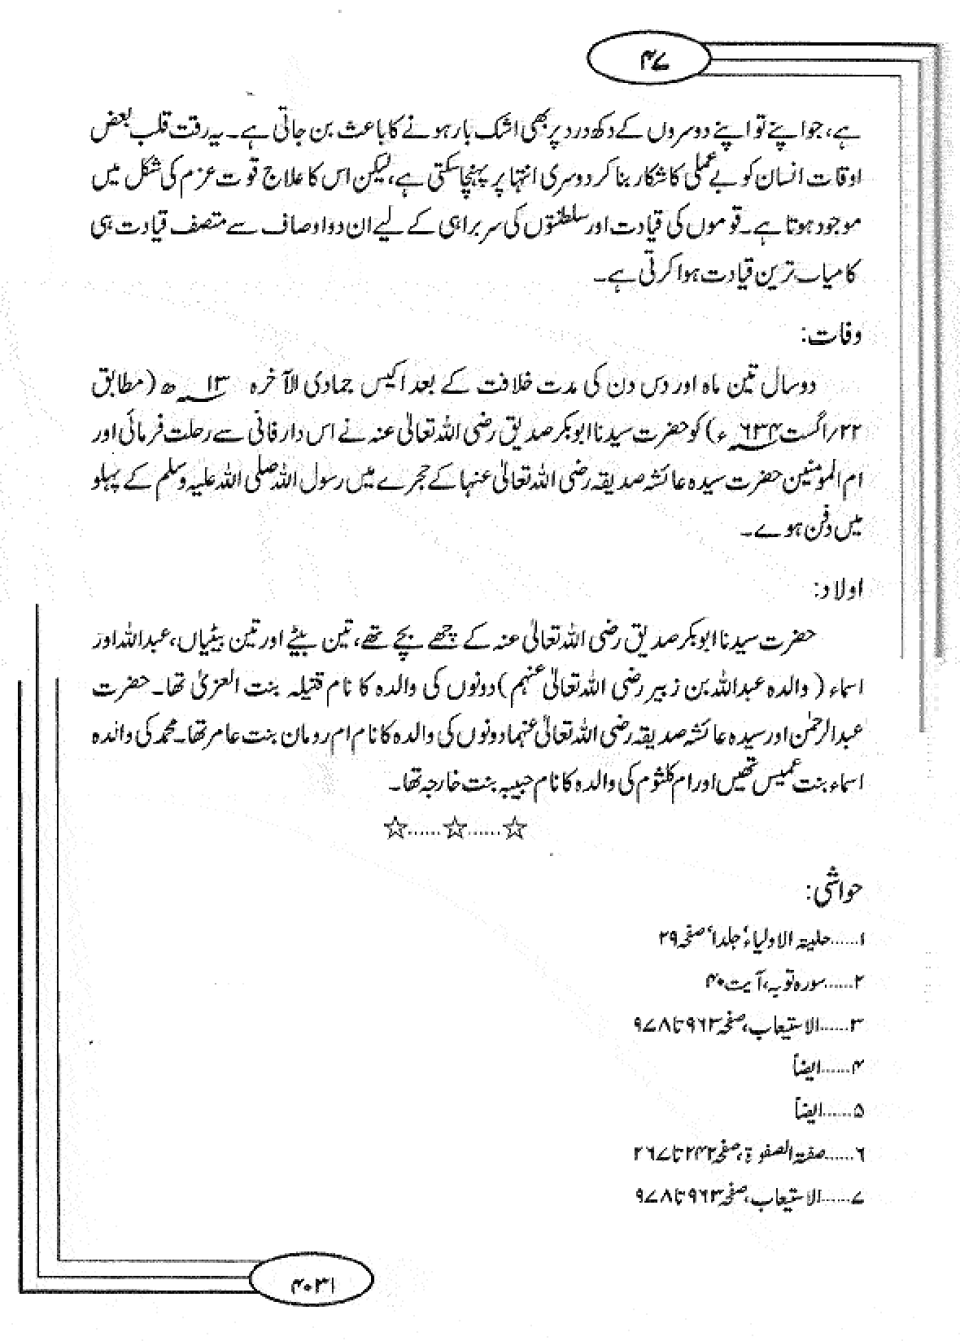 ۴۷
ہے، جو اپنے تو اپنے دوسروں کے دکھ درد پر بھی اشک بار ہونے کا باعث بن جاتی ہے۔ یہ رقت قلب بعض
اوقات انسان کو بے عملی کا شکار بنا کر دوسری انتہا پر پہنچا سکتی ہے، لیکن اس کا علاج قوت عزم کی شکل میں
موجود ہوتا ہے۔ قوموں کی قیادت اور سلطنتوں کی سربراہی کے لیے ان دو اوصاف سے متصف قیادت ہی
کامیاب ترین قیادت ہوا کرتی ہے۔
وفات:
دو سال تین ماہ اور دس دن کی مدت خلافت کے بعد اکیس جمادی الآخرہ ۱۳ھ (مطابق
۲۲/اگست ۶۳۴ء) کو حضرت سیدنا ابوبکر صدیق رضی اللہ تعالیٰ عنہ نے اس دار فانی سے رحلت فرمائی اور
ام المومنین حضرت سیدہ عائشہ صدیقہ رضی اللہ تعالیٰ عنہا کے حجرے میں رسول اللہ صلی اللہ علیہ وسلم کے پہلو
میں دفن ہوے۔
اولاد:
حضرت سیدنا ابوبکر صدیق رضی اللہ تعالیٰ عنہ کے چھے بچے تھے، تین بیٹے اور تین بیٹیاں، عبداللہ اور
اسماء (والدہ عبداللہ بن زبیر رضی اللہ تعالیٰ عنہم) دونوں کی والدہ کا نام قتیلہ بنت العزیٰ تھا۔ حضرت
عبدالرحمٰن اور سیدہ عائشہ صدیقہ رضی اللہ تعالیٰ عنہما دونوں کی والدہ کا نام ام رومان بنت عامر تھا۔ محمد کی والدہ
اسماء بنت عمیس تھیں اور ام کلثوم کی والدہ کا نام حبیبہ بنت خارجہ تھا۔
☆......☆......☆
حواشی:
۱......حلیۃ الاولیاء، جلد۱، صفحہ ۲۹
۲......سورہ توبہ، آیت ۴۰
۳......الاستیعاب، صفحہ ۹۶۳ تا ۹۷۸
۴......ایضاً
۵......ایضاً
۶......صفۃ الصفوۃ، صفحہ ۲۴۲ تا ۲۶۷
۷......الاستیعاب، صفحہ ۹۶۳ تا ۹۷۸
۴۰۳۱